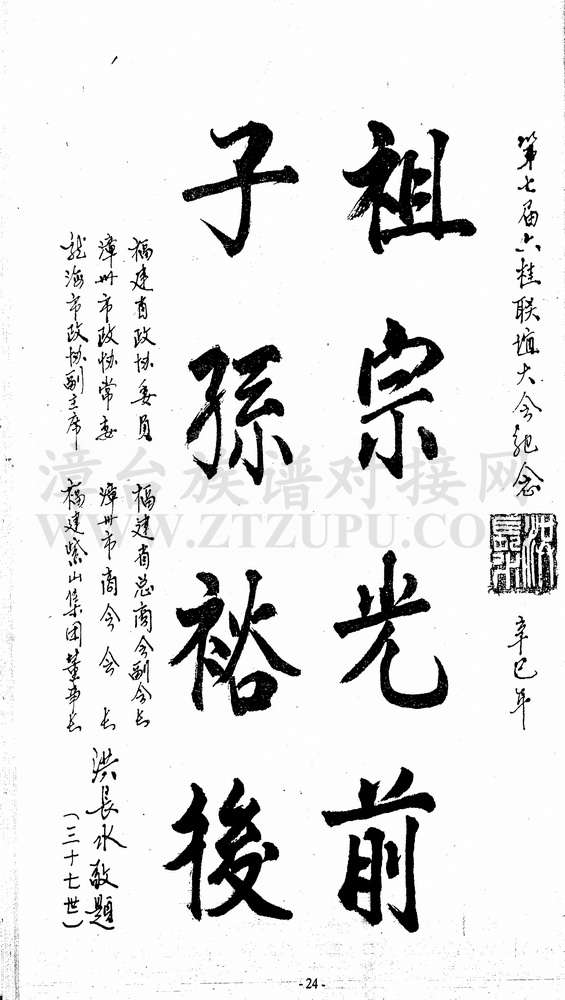 第七届六桂联谊大会纪念
辛巳年
祖宗光前
子孫裕後
福建省政协委员
漳州市政协常委
龙海市政协副主席
福建省总商会副会长
漳州市商会会长
福建紫山集团董事长
洪長水敬題
(三十七世)
漳台族谱对接网
WWW.ZTZUPU.COM
- 24 -